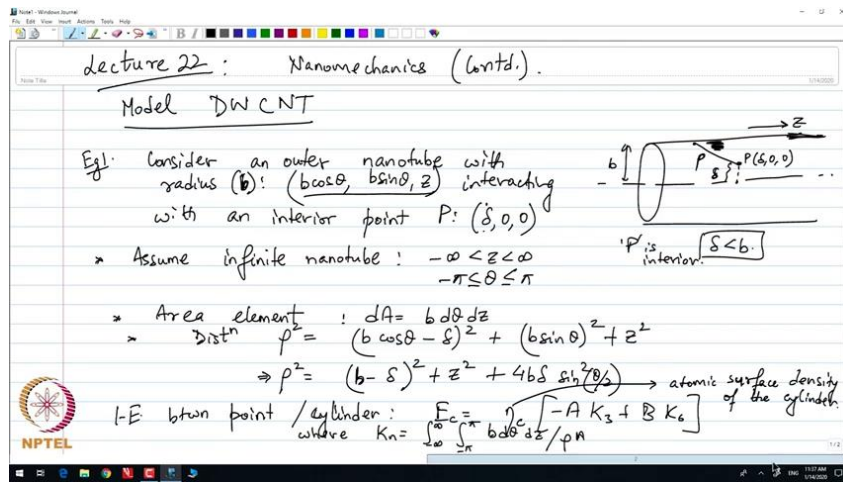 Note1 - Windows Journal
File Edit View Insert Actions Tools Help
Note Title
1/14/2020
Lecture 22 : Nanomechanics (Contd.).
Model DWCNT
Eg1. Consider an outer nanotube with
radius (b): (bcosθ, bsinθ, z) interacting
with an interior point P: (δ, 0, 0)
* Assume infinite nanotube : -∞ < z < ∞
-π ≤ θ ≤ π
* Area element : dA = b dθ dz
* Distⁿ ρ² = (b cosθ - δ)² + (b sinθ)² + z²
⇒ ρ² = (b - δ)² + z² + 4bδ sin²(θ/2)
I-E btwn point / cylinder : E_c = η_c [-A K₃ + B K₆]
where Kn = ∫_{-∞}^{∞} ∫_{-π}^{π} b dθ dz / ρⁿ
→ atomic surface density
of the cylinder
→ z
b
ρ
P(δ, 0, 0)
δ
'P' is
interior. δ < b.
NPTEL
1/2
2
ENG
11:37 AM
1/14/2020